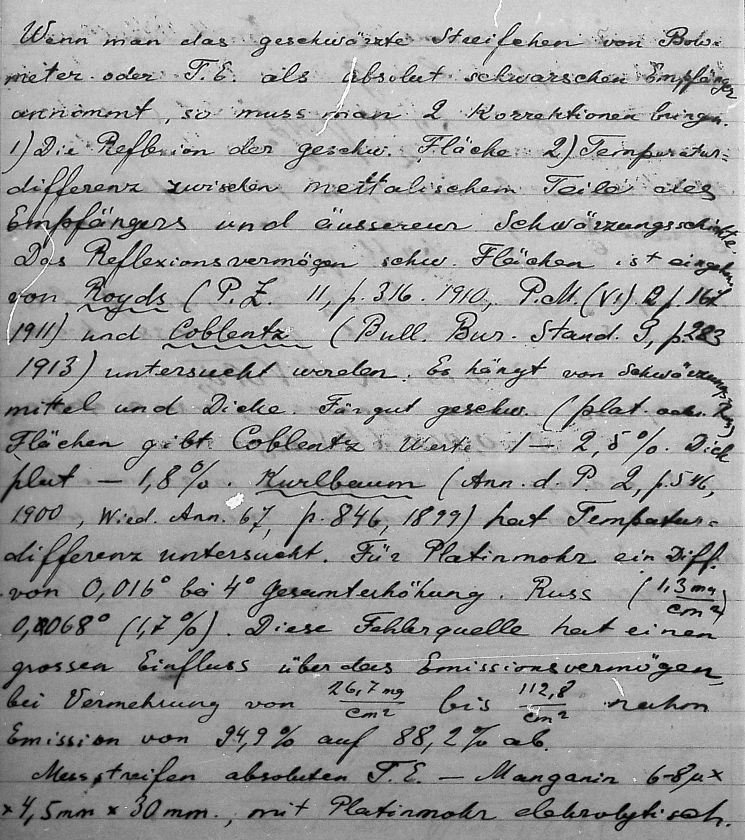 Wenn man das geschwärzte Streifchen von Bolo-
meter oder T.E. als absolut schwarschen Empfänger
annimmt, so muss man 2 Korrektionen bringen.
1) Die Reflexion der geschw. Fläche 2) Temperatur-
differenz zwischen mettalischem Teile des
Empfängers und äusserer Schwärzungsschichte.
Das Reflexionsvermögen schw. Flächen ist eingehend
von Royds (P.Z. 11, p. 316. 1910, P.M. (VI) 21 p. 167
1911) und Coblentz (Bull. Bur. Stand. 9, p. 283
1913) untersucht worden. Es hängt von Schwärzungs-
mittel und Dicke. Für gut geschw. (plat. oder Russ)
Flächen gibt Coblentz Werte 1 – 2,5%. Dick
plat – 1,8%. Kurlbaum (Ann. d. P. 2, p. 546,
1900, Wied. Ann. 67, p. 846, 1899) hat Tempatur-
differenz untersucht. Für Platinmohr ein Diff.
von 0,016° bei 4° Gesamterhöhung. Russ (1,3 mg/cm²)
0,068° (1,7%). Diese Fehlerquelle hat einen
grossen Einfluss über das Emissionsvermögen,
bei Vermehrung von 26,7 mg/cm² bis 112,8/cm² nahm
Emission von 94,9% auf 88,2% ab.
Messtreifen absoluten T.E. – Manganin 6-8 µ ×
× 4,5mm × 30mm., mit Platinmohr elekrolytisch.